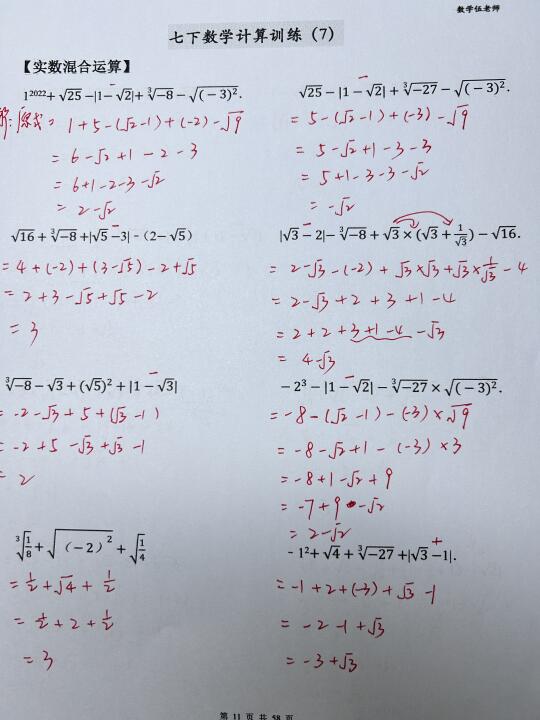 数学伍老师
七下数学计算训练（7）
【实数混合运算】
1²⁰²² + √25 − |1 − √2| + ³√−8 − √(−3)².
解：原式 = 1 + 5 − (√2 − 1) + (−2) − √9
= 6 − √2 + 1 − 2 − 3
= 6 + 1 − 2 − 3 − √2
= 2 − √2
√25 − |1 − √2| + ³√−27 − √(−3)².
= 5 − (√2 − 1) + (−3) − √9
= 5 − √2 + 1 − 3 − 3
= 5 + 1 − 3 − 3 − √2
= −√2
√16 + ³√−8 + |√5 − 3| − （2 − √5）
= 4 + (−2) + (3 − √5) − 2 + √5
= 2 + 3 − √5 + √5 − 2
= 3
|√3 − 2| − ³√−8 + √3 × (√3 + 1/√3) − √16.
= 2 − √3 − (−2) + √3 × √3 + √3 × 1/√3 − 4
= 2 − √3 + 2 + 3 + 1 − 4
= 2 + 2 + 3 + 1 − 4 − √3
= 4 − √3
³√−8 − √3 + (√5)² + |1 − √3|
= −2 − √3 + 5 + (√3 − 1)
= −2 + 5 − √3 + √3 − 1
= 2
−2³ − |1 − √2| − ³√−27 × √(−3)².
= −8 − (√2 − 1) − (−3) × √9
= −8 − √2 + 1 − (−3) × 3
= −8 + 1 − √2 + 9
= −7 + 9 − √2
= 2 − √2
³√1/8 + √（−2）² + √1/4
= 1/2 + √4 + 1/2
= 1/2 + 2 + 1/2
= 3
−1² + √4 + ³√−27 + |√3 − 1|.
= −1 + 2 + (−3) + √3 − 1
= −2 − 1 + √3
= −3 + √3
第 11 页 共 58 页